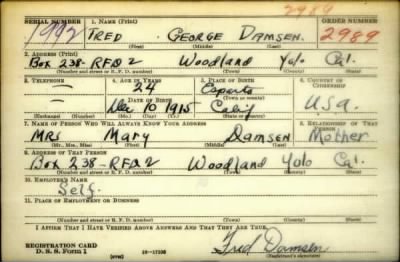 2989
SERIAL NUMBER 1. NAME (Print) ORDER NUMBER
1992 FRED GEORGE DAMSEN. 2989
(First) (Middle) (Last)
2. ADDRESS (Print)
BOX 238-RFD2 Woodland Yolo Cal.
(Number and street or R. F. D. number) (Town) (County) (State)
3. TELEPHONE 4. AGE IN YEARS 5. PLACE OF BIRTH 6. COUNTRY OF CITIZENSHIP
— 24 Esparto
DATE OF BIRTH (Town or county)
— Dec 10 1915 Calif U.S.a.
(Exchange) (Number) (Mo.) (Day) (Yr.) (State or country)
7. NAME OF PERSON WHO WILL ALWAYS KNOW YOUR ADDRESS 8. RELATIONSHIP OF THAT PERSON
MRS Mary Damsen Mother
(Mr., Mrs., Miss) (First) (Middle) (Last)
9. ADDRESS OF THAT PERSON
Box 238-RFD2 Woodland Yolo Cal.
(Number and street or R. F. D. number) (Town) (County) (State)
10. EMPLOYER'S NAME
Self.
11. PLACE OF EMPLOYMENT OR BUSINESS
(Number and street or R. F. D. number) (Town) (County) (State)
I AFFIRM THAT I HAVE VERIFIED ABOVE ANSWERS AND THAT THEY ARE TRUE.
REGISTRATION CARD
D. S. S. Form 1 (over) Fred Damsen
(Registrant's signature)